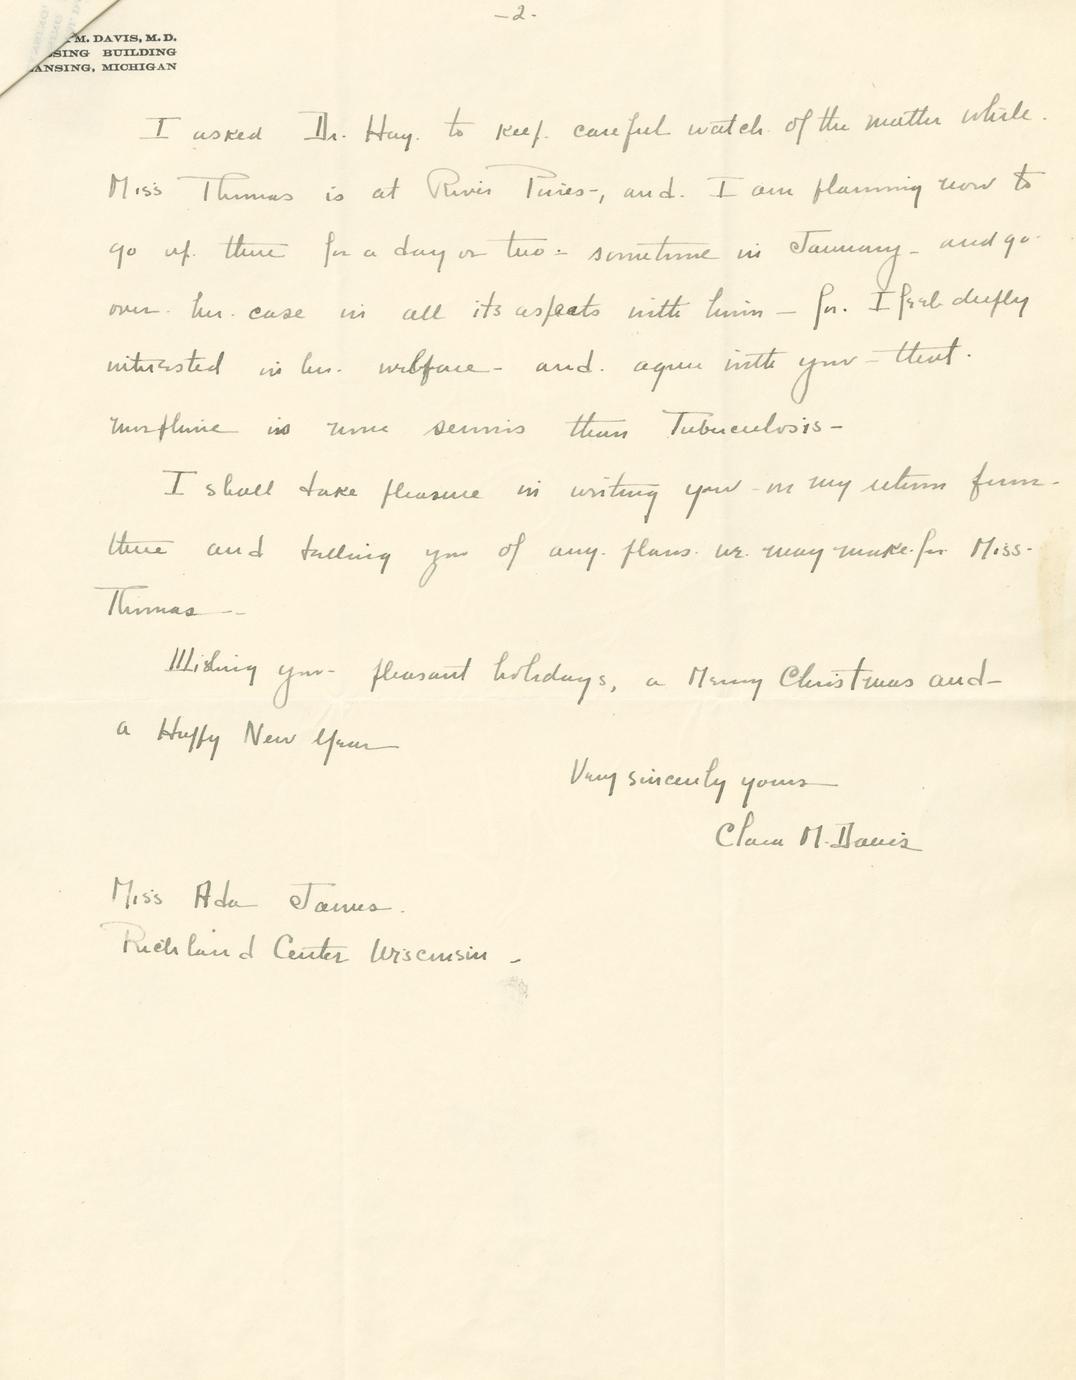 -2-
M. DAVIS, M.D.
SING BUILDING
ANSING, MICHIGAN
I asked Dr. Hay. to keep careful watch of the matter while.
Miss Thomas is at River Pines-, and. I am planning now to
go up there for a day or two - sometime in January - and go
over. her. case in all its aspects with him - for. I feel deeply
interested in her. welfare - and. agree with you - that.
morphine is more serious than Tuberculosis -
I shall take pleasure in writing you - on my return from -
there and telling you of any. plans. we. may make for Miss.
Thomas -
Wishing you - pleasant holidays, a Merry Christmas and -
a Happy New Year
Very sincerely yours
Clara M. Davis
Miss Ada James.
Richland Center Wisconsin -